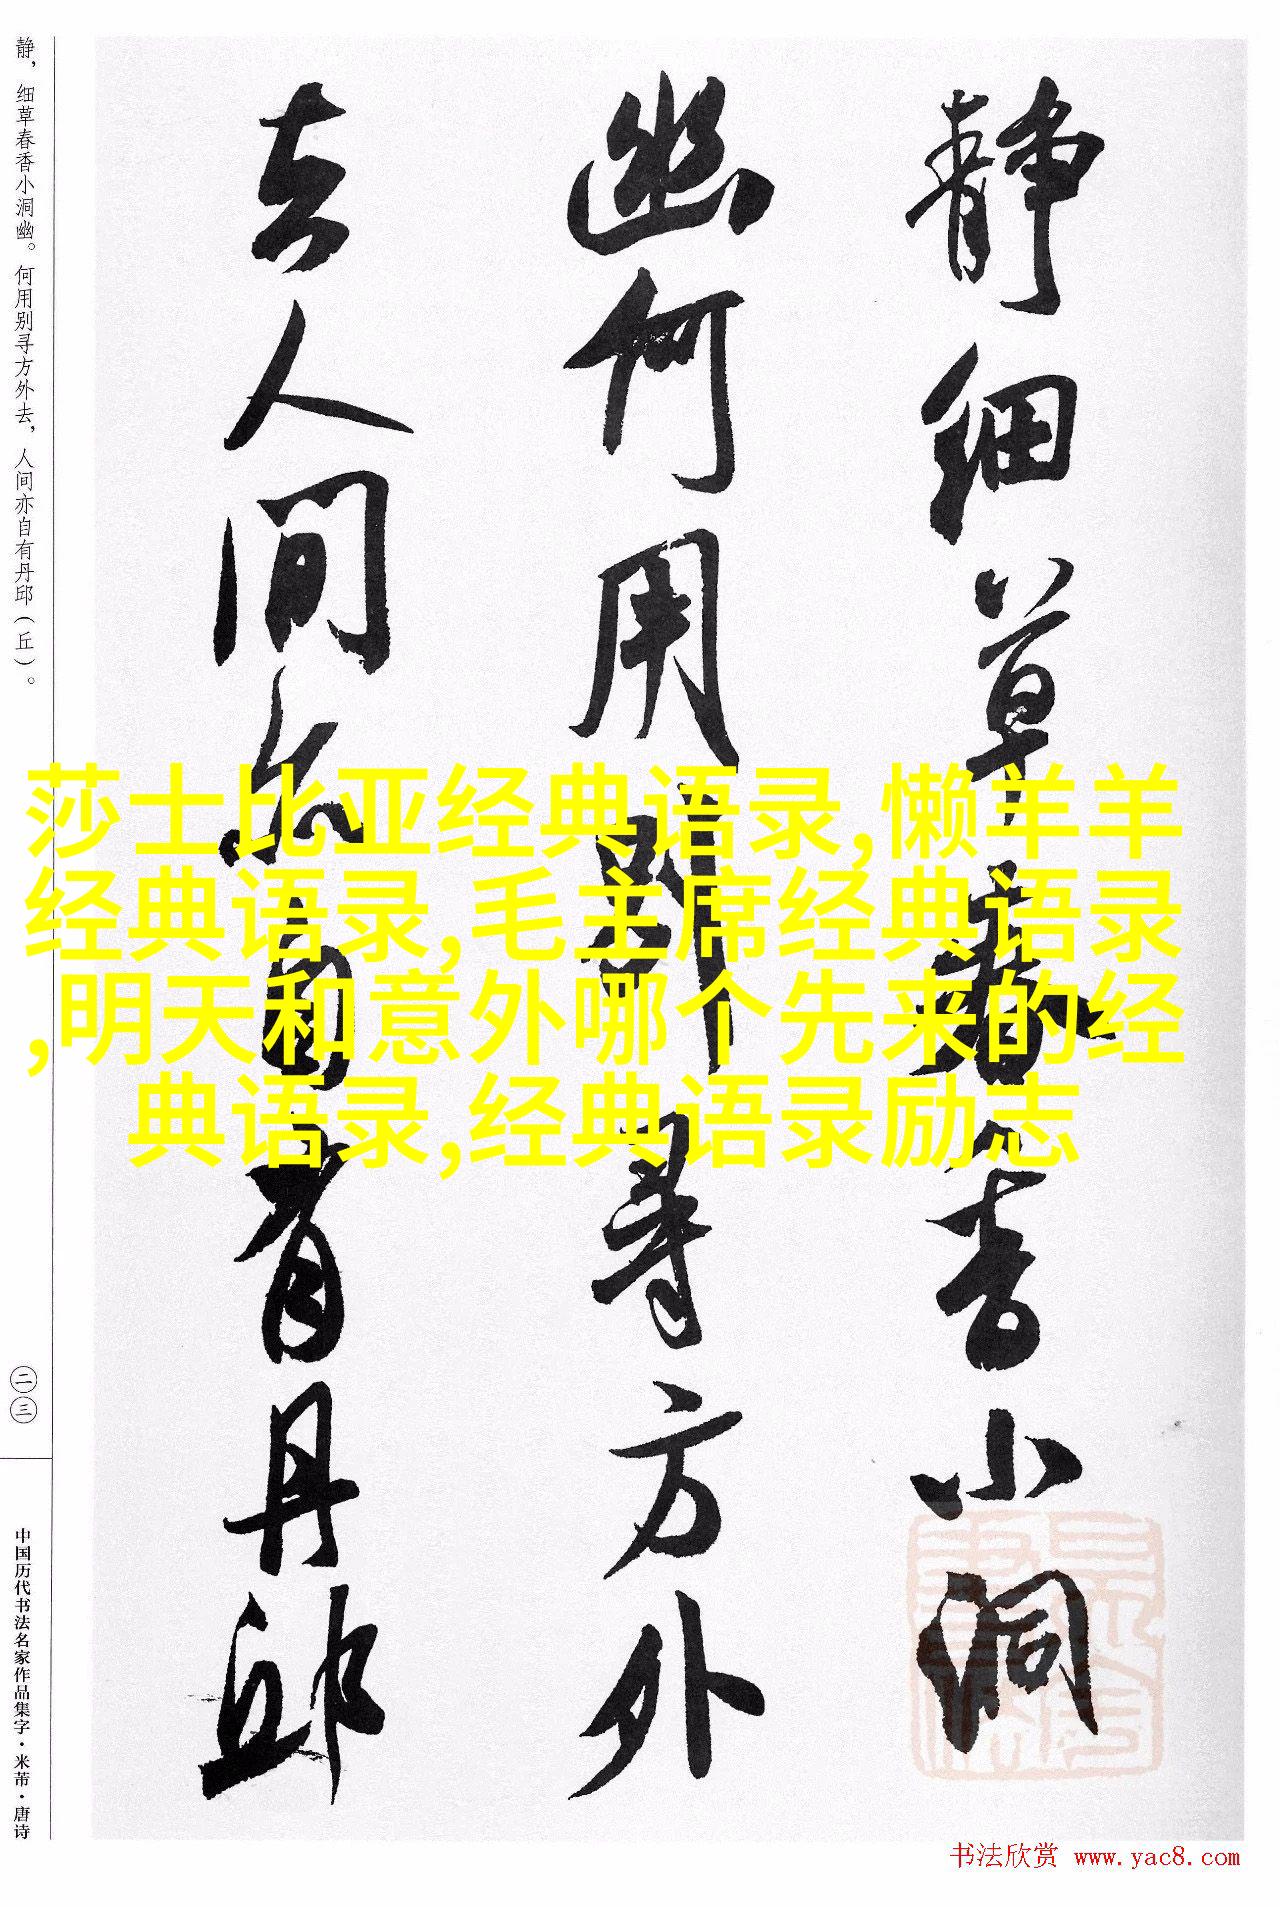 静细草春香小洞
幽何用别寻方外
去人间亦自有丹邱
静，细草春香小洞幽。何用别寻方外去，人间亦自有丹邱（丘）。
二三
中国历代书法名家作品集字·米芾·唐诗
莎士比亚经典语录,懒羊羊
经典语录,毛主席经典语录
,明天和意外哪个先来的经
典语录,经典语录励志
书法欣赏 www.yac8.com